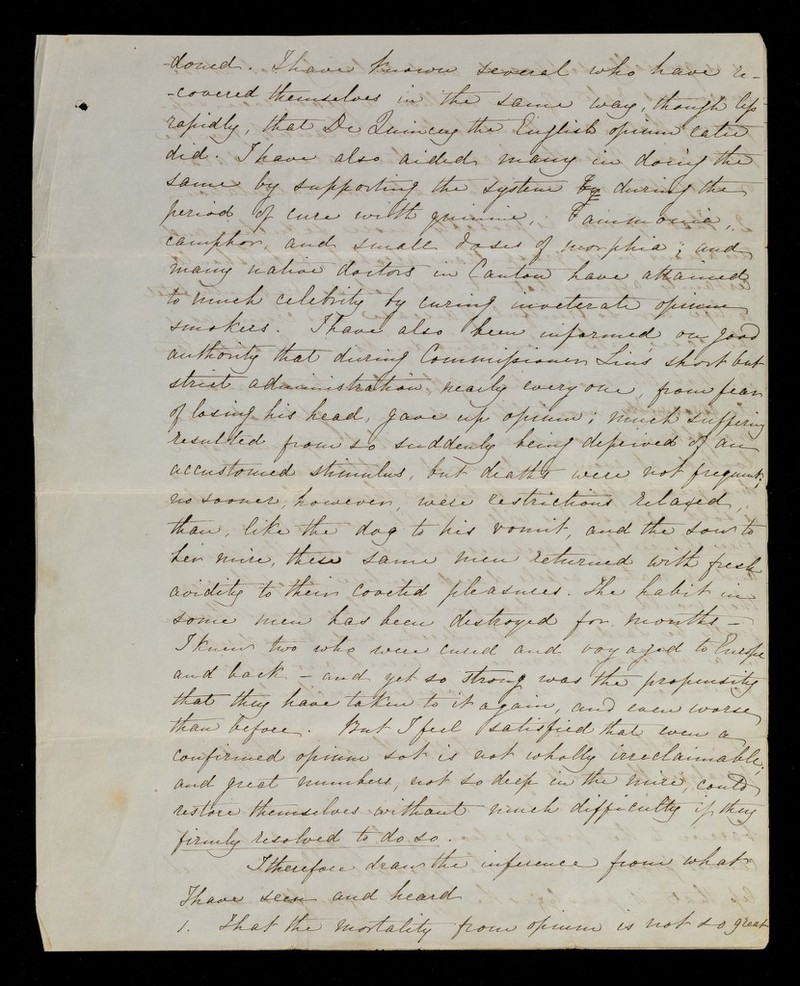 -doned. I have known several who have re-
-covered themselves in the same way, though less
rapidly, that De Quincey the English opium eater
did. I have also aided many in doing the
same by supporting the system by during the
period of cure with quinine, ammonia,
camphor, and small doses of morphia; and
many native doctors in Canton have attained
to much celebrity by curing inveterate opium
smokers. I have also been informed on good
authority that during Commissioner Lin's short but
strict administration, nearly every one, from fear
of losing his head, gave up opium; much suffering
resulted from so suddenly being deprived of an
accustomed stimulus, but deaths were not frequent;
no sooner, however, were restrictions relaxed,
than, like the dog to his vomit, and the sow to
her mire, these same men returned with fresh
avidity to their coveted pleasures. The habit in
some men has been destroyed for months -
I knew two who were cured and voyaged to Europe
and back - and yet so strong was the propensity
that they have taken to it again, and even worse
than before. But I feel satisfied that even a
confirmed opium sot is not wholly irreclaimable;
and great numbers, not so deep in the mire, could
restore themselves without much difficulty if they
firmly resolved to do so.
I therefore draw the inference from what
I have seen and heard
1. That the mortality from opium is not so great